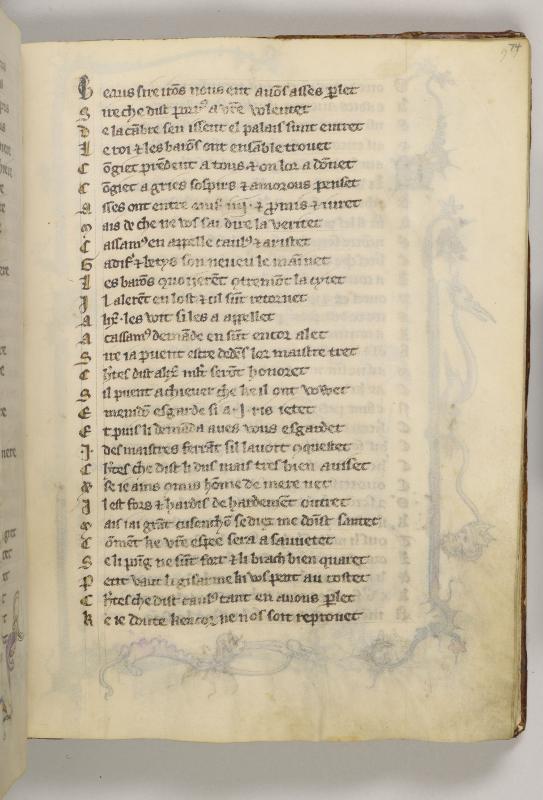 74
B eaus sire itõs nous ent auõs asses ꝑlet
S ire che dist porrꝰ a vr̃e volentet
D e la cãbre sen issent el palais sunt entret
L e roi ⁊ les barõs ont ensãble trouet
C õgiet prẽdent a tous ⁊ on lor a dõnet
C õgiet a gries sospirs ⁊ amorous penset
A sses ont entre iiij · ⁊ ꝓmis ⁊ iuret
M ais de che ne vos sai dire la veritet
C assamꝰ en appelle caulꝰ ⁊ aristet
G adifꝰ ⁊ betys son neueu le mainet
L es barõs
J l alerẽt en lost ⁊ cil sũt retornet
A les voit si les a appellet
A cassamꝰ demãde en sũt encor alet
S ire ia puent estre dedẽs lor maistre tret
C h̃tes dist mlt̃ serõt honoret
S il puent achieuer che ke il ont vowet
E menidꝰ esgarde si a · J · ris ietet
E t puis li demãda aues vous esgardet
· J · des maistres ferrãt sil lauoit
C h̃tes che dist li dus mais tres bien auiset
M e ie ains hõme de mere net
J l est fors ⁊ hardis de hardemẽt outret
M ais iai grãt se diex me doĩst santet
C õment ke vr̃e espee sera a sauuetet
S e li poĩg ne sũt fort ⁊ li brach bien quaret
P ent vaut li gisarme ki vos pent au costet
C h̃tes che dist caulꝰ tant en auons ꝑlet
K e ie doute kencor ne nos soit reprouet